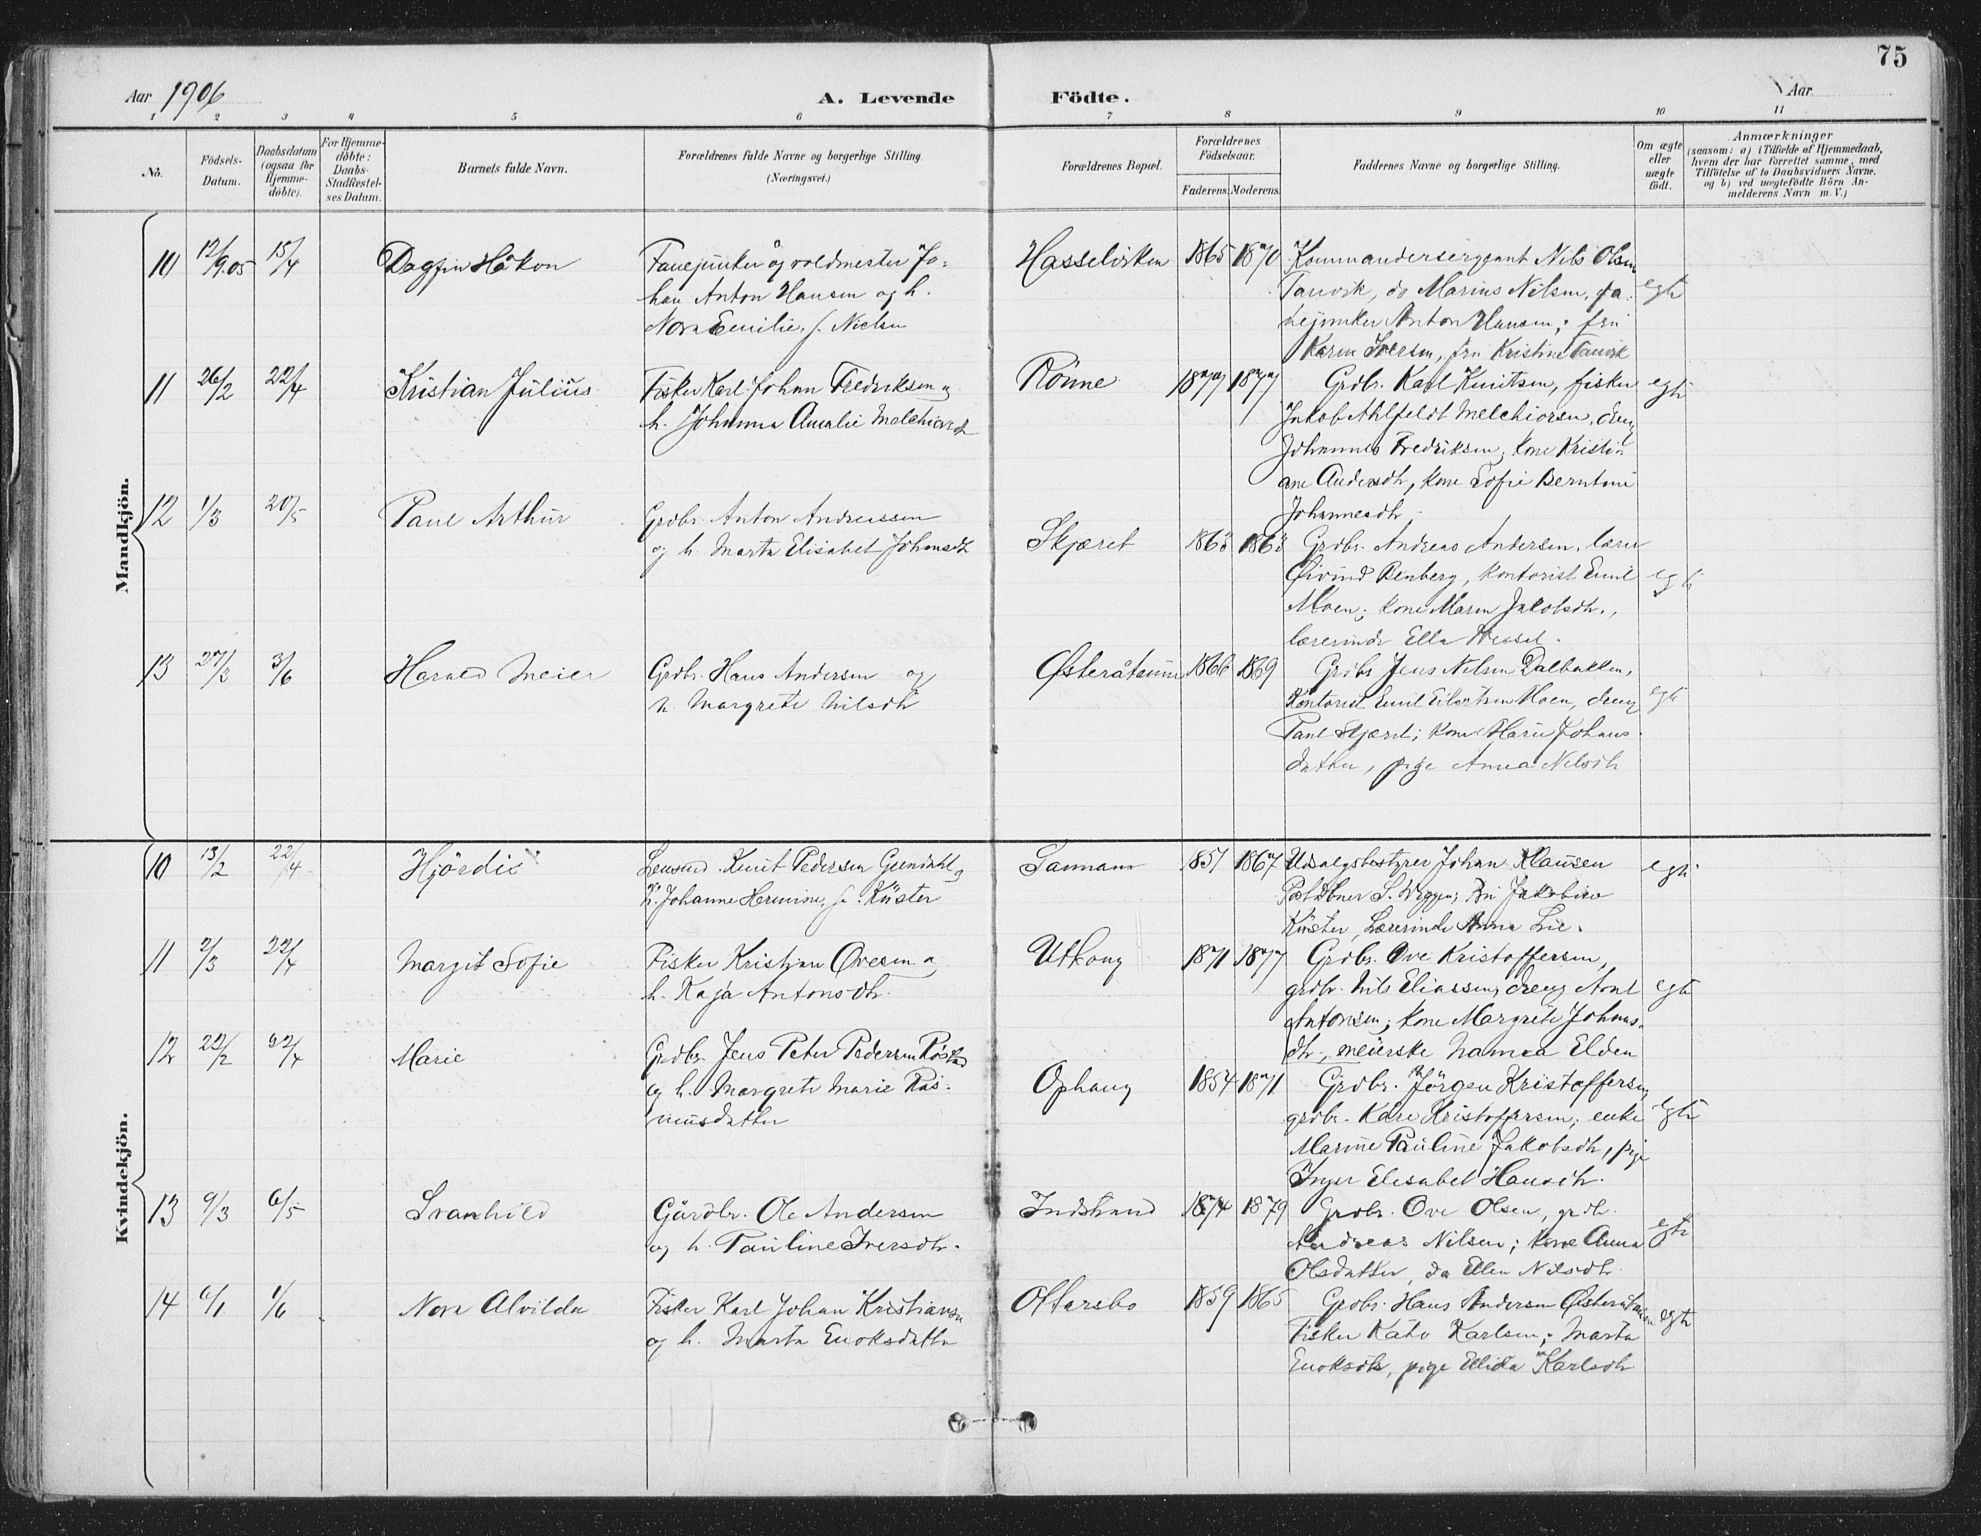 75
Aar 1906
A. Levende Födte.
Aar
1 2 3 4 5 6 7 8 9 10 11
No.
Födsels-
Datum.
Daabsdatum
(ogsaa för
Hjemme-
döbte).
For Hjemme-
döbte:
Daabs-
Stadfæstel-
ses Datum.
Barnets fulde Navn.
Forældrenes fulde Navne og borgerlige Stilling.
(Næringsvei.)
Forældrenes Bopæl.
Forældrenes
Födselsaar.
Faderens. Moderens.
Faddernes Navne og borgerlige Stilling.
Om ægte
eller
uægte
födt.
Anmærkninger
(saasom: a) i Tilfælde af Hjemmedaab,
hvem der har forrettet samme, med
Tilföielse af to Daabsvidners Navne.
og b) ved uægtefödte Börn An-
melderens Navn m. V.)
Mandkjön.
10 12/9.05 15/4 Dagfin Håkon
Fanejunker og voldmester Jo-
han Anton Hansen og h.
Nora Emilie, f. Nielsen
Hasselvirken 1865 1870
Kommandersergeant Nils Olsen
Tanvik, do Marius Nilsen, fa-
nejunker Anton Hansen; fru
Karen Iversen, fru Kristine Tanvik
egte
11 26/2 22/4 Kristian Julius
Fisker Karl Johan Fredriksen og
h. Johanna Amalie Melchiorsdt
Rönne 1877 1877
Grdbr. Karl Knutsen, fisker
Jakob Ahlfeldt Melchiorsen, dreng
Johannes Fredriksen; kone Kristi-
ane Andersdtr, kone Sofie Berntine
Johannesdtr.
egte
12 1/3 20/5 Paul Arthur
Grdbr. Anton Andreassen
og h. Marta Elisabet Johansdt
Skjæret 1863 1863
Grdbr. Andreas Andersen, lærer
Øivind Renberg, kontorist Emil
Moen; kone Maren Jakobsdtr.,
lærerinde Ella Wessel.
egte
13 27/3 3/6 Harald Meier
Grdbr. Hans Andersen og
h. Margrete Nilsdtr
Østeråtsunne 1866 1869
Grdbr Jens Nilsen Dalbakken,
Kontorist Emil Eilertsen Moen, dreng
Paul Skjæret; kone Marie Johans-
datter, pige Anna Nilsdtr
egte
Kvindekjön.
10 13/2 22/4 Hjördis
Lensmd. Knut Pedersen Grendahl og
h. Johanne Hermine, f. Küster
Tannam 1857 1867
Udsalgsbestyrer Johan Klausen
Postaabner S. Wiggen; Fru Jakobine
Küster, Lærerinde Anna Lie.
egte
11 2/3 22/4 Margit Sofie
Fisker Kristian Ovesen og
h. Kaja Antonsdtr.
Uthaug 1871 1877
Grdbr. Ove Kristoffersen,
grdbr. Nils Eliassen, dreng Arnt
Antonsen; kone Margrete Johans-
dtr., meierske Namca Elden
egte
12 22/2 22/4 Marie
Grdbr. Jens Peter Pedersen Røstad
og h. Margrete Marie Ras-
musdatter
Ophaug 1854 1871
Grdbr. Jörgen Kristoffersen,
grdbr. Kåre Kristoffersen; enke
Marine Pauline Jakobsdtr, pige
Inger Elisabet Hansdtr.
egte
13 9/3 6/5 Svanhild
Gårdbr. Ole Andersen
og h. Pauline Iversdtr.
Indstrand 1874 1879
Grdbr. Ove Olsen, grdbr.
Andreas Nilsen; kone Anna
Olsdatter, do Ellen Nilsdtr.
egte
14 6/1 1/6 Nora Alvilda
Fisker Karl Johan Kristiansen
og h. Marta Enoksdatter
Ottersbo 1859 1865
Grdbr. Hans Andersen Østeråtsunne
Fisker Kato Karlsen; Marta
Enoksdtr, pige Ellida Karlsdtr
egte